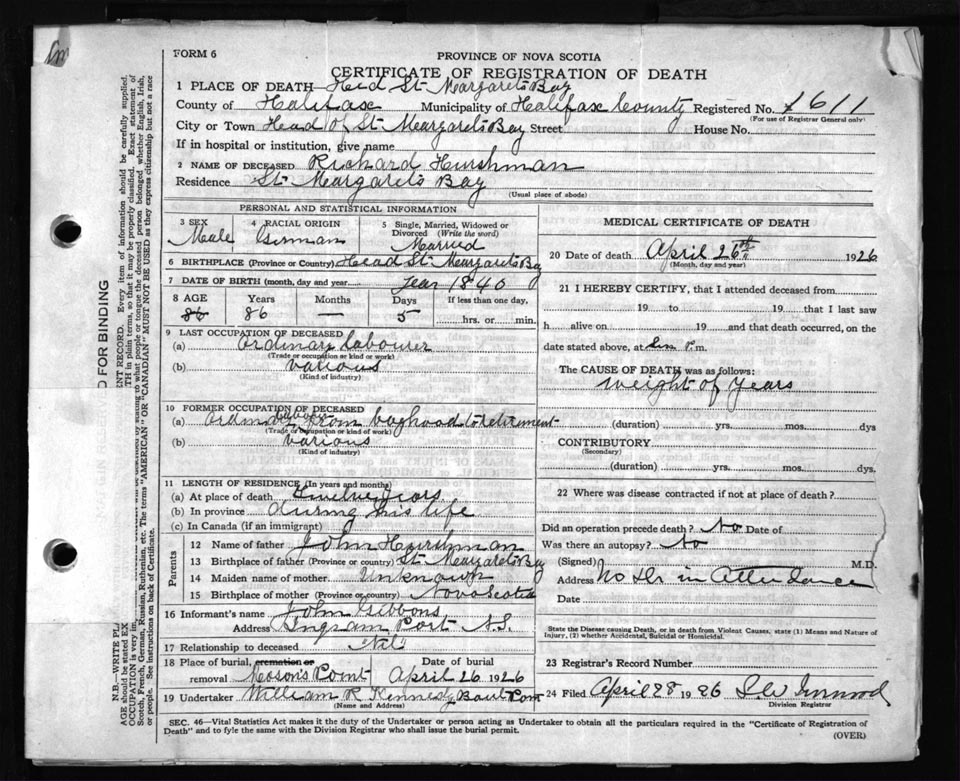 FORM 6
PROVINCE OF NOVA SCOTIA
CERTIFICATE OF REGISTRATION OF DEATH
1 PLACE OF DEATH Head St. Margarets Bay
County of Halifax Municipality of Halifax County Registered No. 1611
(For use of Registrar General only)
City or Town Head of St. Margarets Bay Street House No.
If in hospital or institution, give name
2 NAME OF DECEASED Richard Hurshman
Residence St. Margarets Bay
(Usual place of abode)
PERSONAL AND STATISTICAL INFORMATION
3 SEX 4 RACIAL ORIGIN 5 Single, Married, Widowed or Divorced (Write the word)
Male German Married
6 BIRTHPLACE (Province or Country) Head St. Margarets Bay
7 DATE OF BIRTH (month, day and year) Year 1840
8 AGE Years Months Days If less than one day,
86 86 — 5 hrs. or min.
9 LAST OCCUPATION OF DECEASED
(a) Ordinary labourer
(Trade or occupation or kind of work)
(b) various
(Kind of industry)
10 FORMER OCCUPATION OF DECEASED
(a) Ordinary labourer from boyhood to retirement
(Trade or occupation or kind of work)
(b) various
(Kind of industry)
11 LENGTH OF RESIDENCE (In years and months)
(a) At place of death Twelve Years
(b) In province during his life
(c) In Canada (if an immigrant)
Parents
12 Name of father John Hurshman
13 Birthplace of father (Province or country) St. Margarets Bay
14 Maiden name of mother Unknown
15 Birthplace of mother (Province or country) Nova Scotia
16 Informant's name John Gibbons
Address Ingram Port N.S.
17 Relationship to deceased Nil
18 Place of burial, cremation or removal Date of burial
Mosons Point April 26 1926
19 Undertaker William R Kennedy
(Name and Address)
MEDICAL CERTIFICATE OF DEATH
20 Date of death April 26th 1926
(Month, day and year)
21 I HEREBY CERTIFY, that I attended deceased from
19 to 19 that I last saw
h alive on 19 and that death occurred, on the
date stated above, at P.m.
The CAUSE OF DEATH was as follows:
weight of years
(duration) yrs. mos. dys
CONTRIBUTORY
(Secondary)
(duration) yrs. mos. dys.
22 Where was disease contracted if not at place of death?
Did an operation precede death? No Date of
Was there an autopsy? No
(Signed) M.D.
Address No Dr in Attendance
Date
State the Disease causing Death, or in death from Violent Causes, state (1) Means and Nature of
Injury, (2) whether Accidental, Suicidal or Homicidal.
23 Registrar's Record Number
24 Filed April 28 1926
Division Registrar
SEC. 46—Vital Statistics Act makes it the duty of the Undertaker or person acting as Undertaker to obtain all the particulars required in the "Certificate of Registration of
Death" and to fyle the same with the Division Registrar who shall issue the burial permit.
(OVER)
D FOR BINDING
N.B.—WRITE PL
ENT RECORD. Every item of information should be carefully supplied.
AGE should be stated EX
TH in plain terms, so that it may be properly classified. Exact statement of
OCCUPATION is very im
Scotch, French, German, Russian, Ruthenian, etc. The terms "AMERICAN" OR "CANADIAN" MUST NOT BE USED as they express citizenship but not a race
or people. See instructions on back of Certificate.